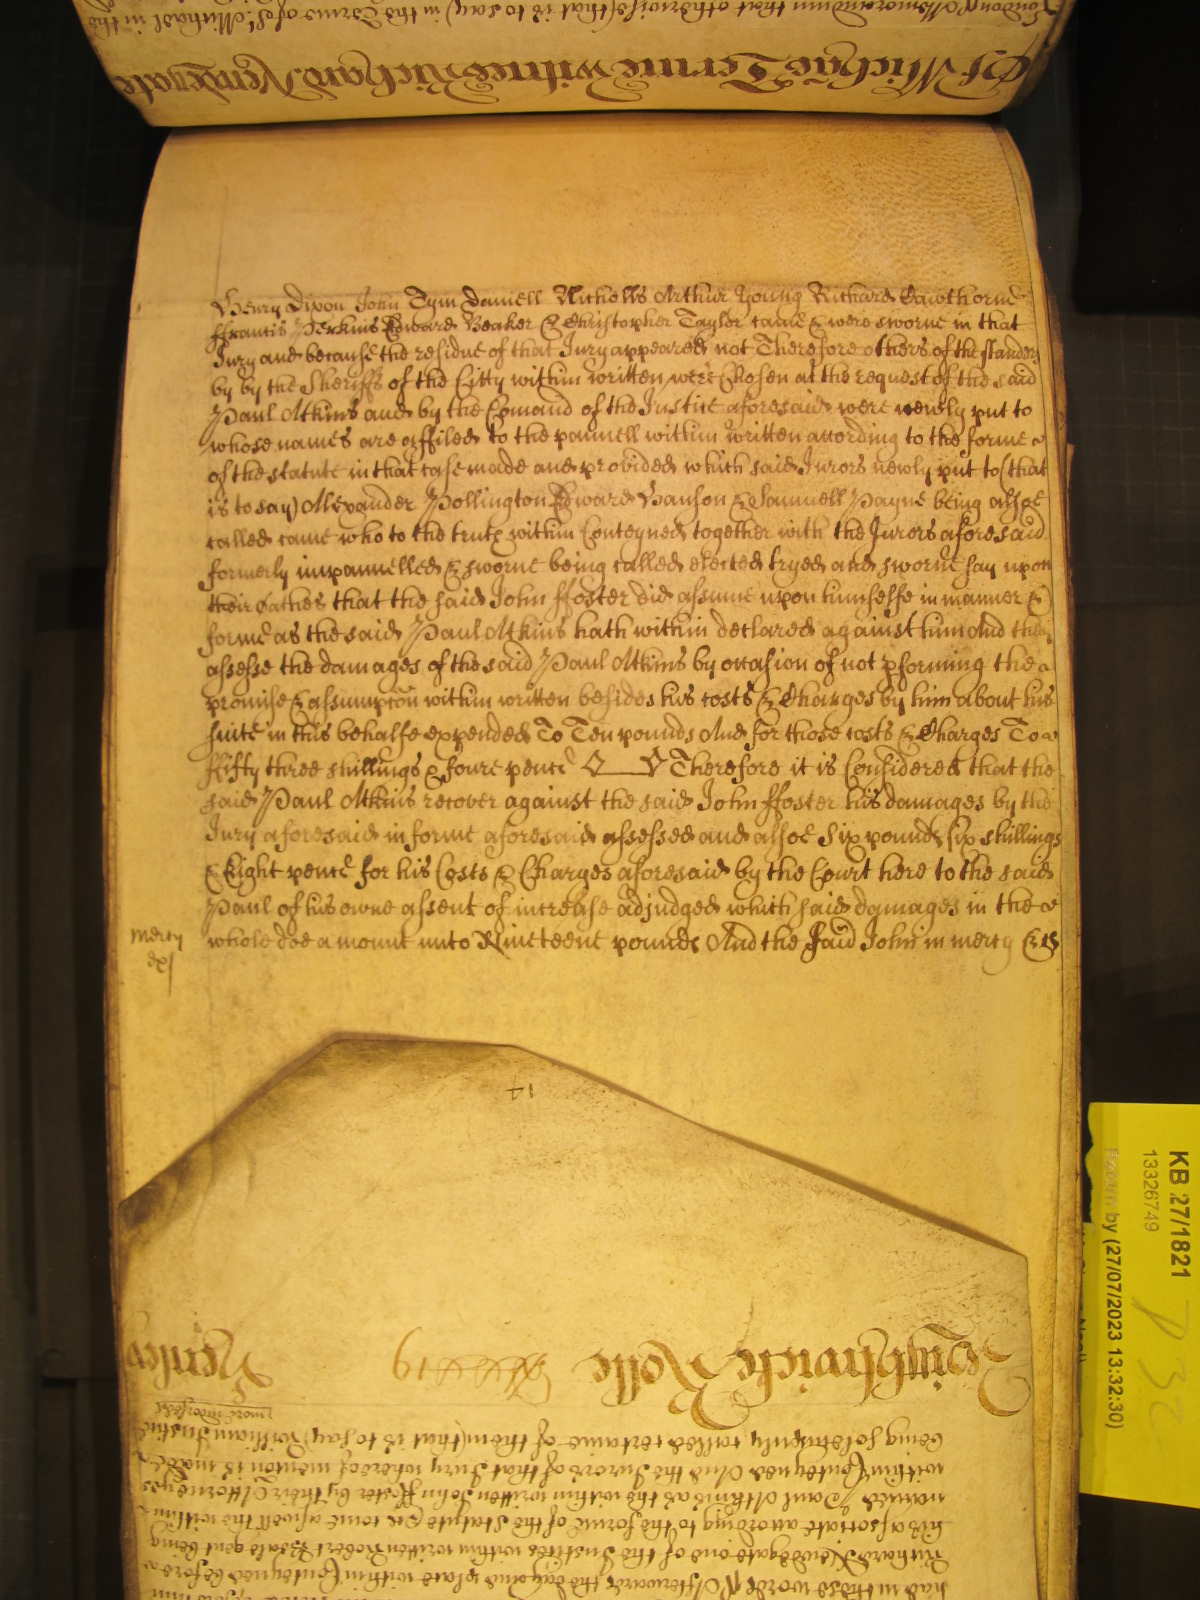 London Memorandum that otherwise (that is to say) in the Terme of St Michael in the
Of Michās Terme witnes Richard Newdegate
Henry Dixon John Tym Daniell Nicholls Arthur Young Richard Cawthorne
ffrancis Perkins Edward Beaker & Christopher Tayler came & were sworne in that
Jury and because the residue of that Jury appeared not Therefore others of the standers
by by the Sheriffs of the Citty within written were Chosen at the request of the said
Paul Atkins and by the Comand of the Justice aforesaid were newly put to
whose names are affiled to the pannell within written according to the forme
of the statute in that case made and provided which said Jurors newly put to (that
is to say) Alexander Pollington Edward Hanson & Samuell Payne being alsoe
called came who to the truth within Conteyned together with the Jurors aforesaid
formerly impannelled & sworne being called elected tryed and sworne say upon
their oathes that the said John ffoster did assume upon himselfe in manner &
forme as the said Paul Atkins hath within declared against him And they
assesse the damages of the said Paul Atkins by occasion of not pforming the
promise & assumpcōn within written besides his costs & Charges by him about his
suite in this behalfe expended To Ten pounds And for those costs & Charges To
ffifty three shillings & foure pence Therefore it is Considered that the
said Paul Atkins recover against the said John ffoster his damages by the
Jury aforesaid in forme aforesaid assessed and alsoe Six pounds six shillings
& Eight pence for his Costs & Charges aforesaid by the Court here to the said
Paul of his owne assent of increase adjudged which said damages in the
whole doe amount unto Nineteene pounds And the said John in mercy &c
mercy
14
KB 27/1821
13326749
by (27/07/2023 13:32:30)
Rolle
19
being solempnly called certaine of them (that is to say) William
within Conteyned And the Jurors of that Jury whereof mencon is made
named Paul Atkins as the within written John ffoster by their Attorneyes
his associate according to the forme of the statute &c come aswell the within
Richard Newdegate one of the Justices within written Robert Beale gent being
had in these words Afterwards the day and place within Conteyned before